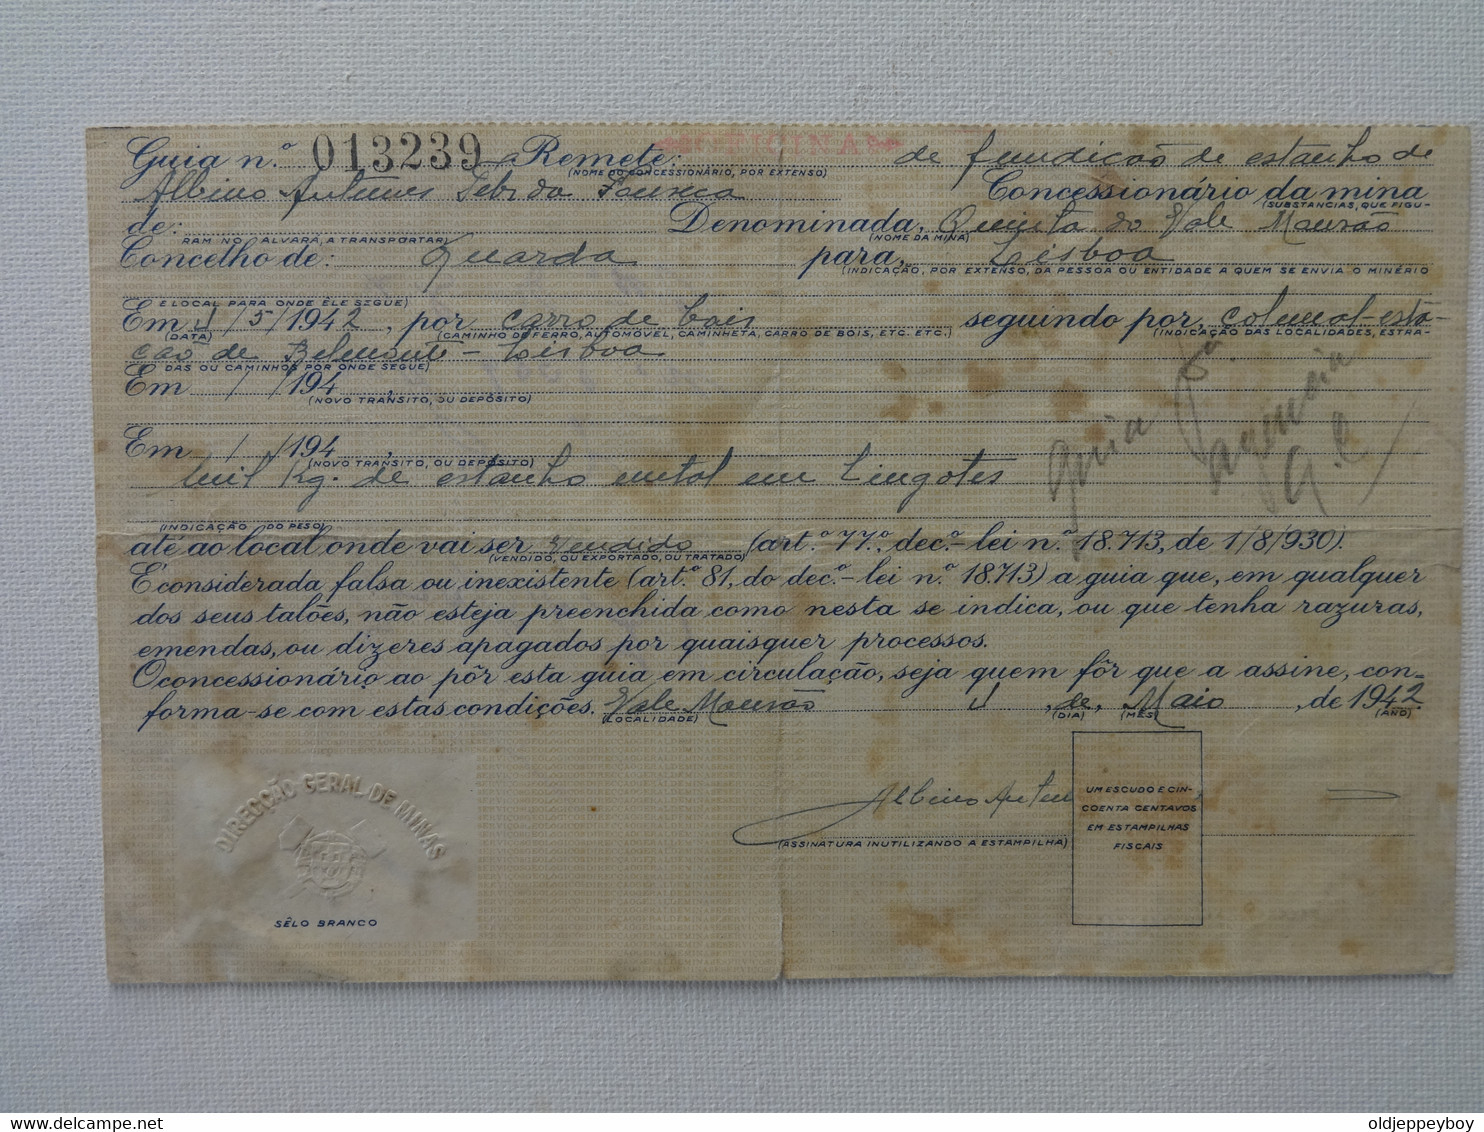 Guia n.º 013239 Remete: OFICINA de fundição de estanho de
(NOME DO CONCESSIONÁRIO, POR EXTENSO)
Albino Antunes da Fonseca Concessionário da mina
(SUBSTANCIAS, QUE FIGU-
de: Denominada, Quinta do Vale Mourão
RAM NO ALVARÁ, A TRANSPORTAR) (NOME DA MINA)
Concelho de: Guarda para, Lisboa
(INDICAÇÃO, POR EXTENSO, DA PESSOA OU ENTIDADE A QUEM SE ENVIA O MINÉRIO
E LOCAL PARA ONDE ÊLE SEGUE)
Em 1/5/1942, por carro de bois seguindo por, Colmeal-esta-
(DATA) (CAMINHO DE FERRO, AUTOMÓVEL, CAMINHETA, CARRO DE BOIS, ETC. ETC.) (INDICAÇÃO DAS LOCALIDADES, ESTRA-
ção de Belmonte - Lisboa
DAS OU CAMINHOS POR ONDE SEGUE)
Em / /194 ,
(NOVO TRÂNSITO, OU DEPÓSITO)
Em / /194 ,
(NOVO TRÂNSITO, OU DEPÓSITO)
mil Kg. de estanho metal em lingotes
(INDICAÇÃO DO PESO)
Guia
agencia
até ao local onde vai ser vendido (art.º 77.º, dec.º-lei n.º 18.713, de 1/8/930).
(VENDIDO, OU EXPORTADO, OU TRATADO)
É considerada falsa ou inexistente (art.º 81, do dec.º-lei n.º 18.713) a guia que, em qualquer
dos seus talões, não esteja preenchida como nesta se indica, ou que tenha razuras,
emendas, ou dizeres apagados por quaisquer processos.
O concessionário ao pôr esta guia em circulação, seja quem fôr que a assine, con-
forma-se com estas condições. Vale Mourão 1, de, Maio, de 1942
(LOCALIDADE) (DIA) (MÊS) (ANO)
DIRECÇÃO GERAL DE MINAS
SÊLO BRANCO
Albino Antun
(ASSINATURA INUTILIZANDO A ESTAMPILHA)
UM ESCUDO E CIN-
COENTA CENTAVOS
EM ESTAMPILHAS
FISCAIS
oldjeppeyboy